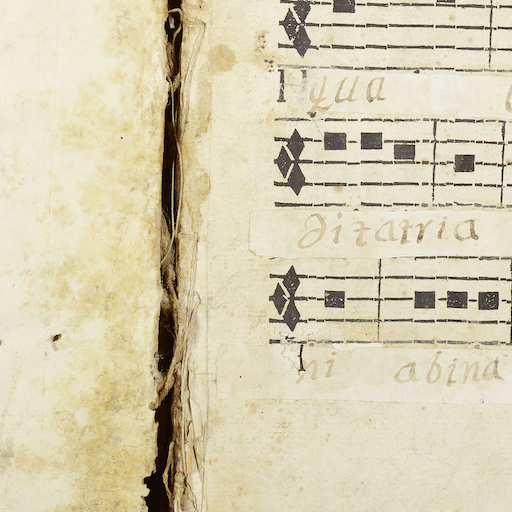 qua
ditatria
ni abina